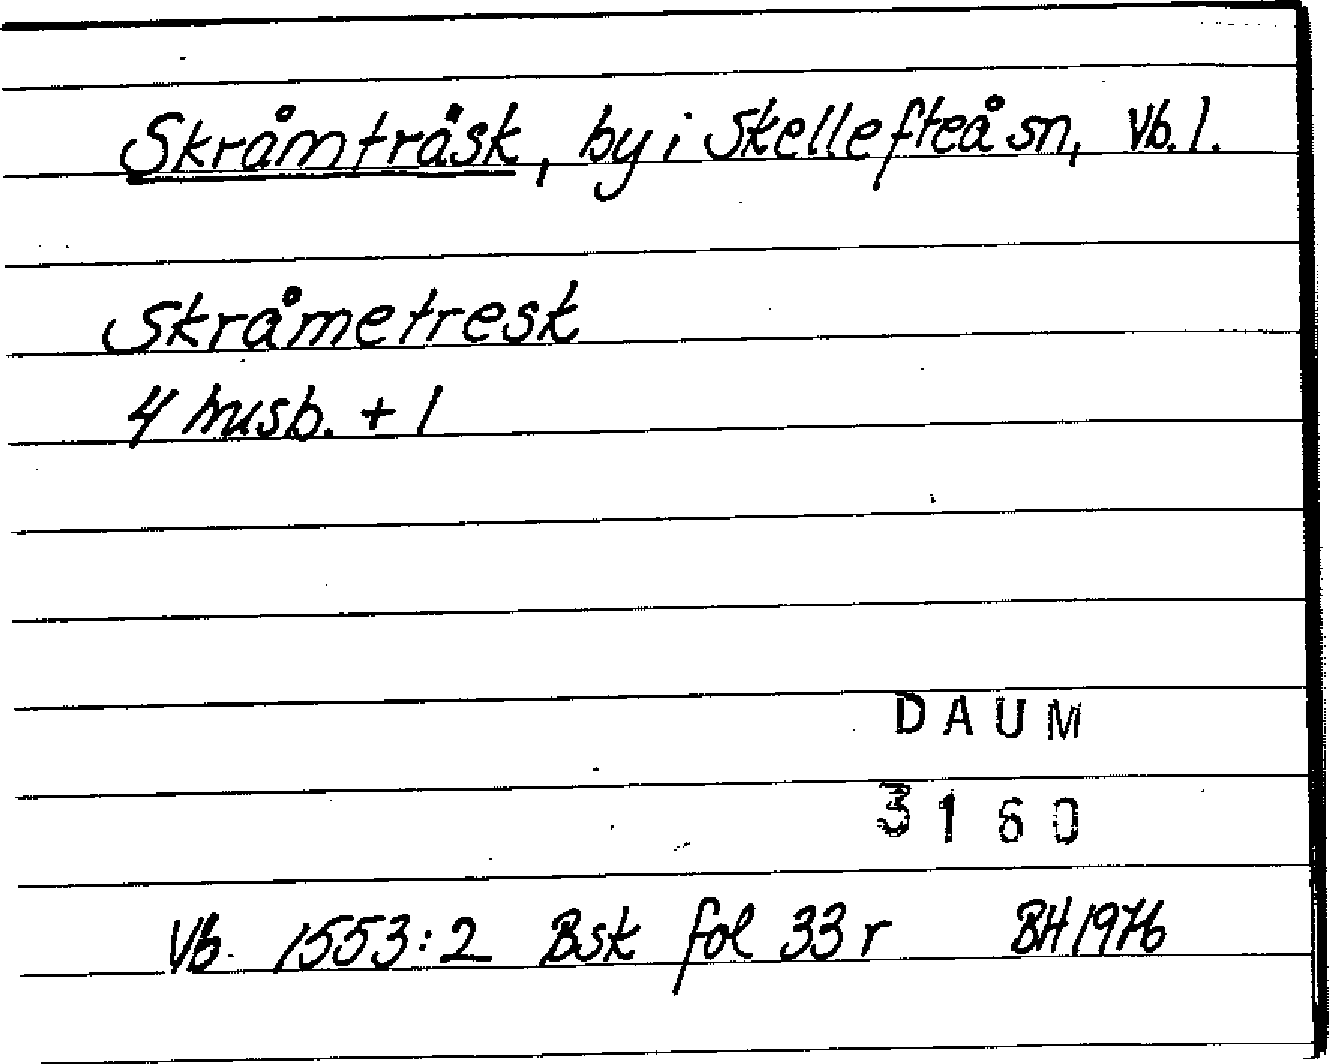 Skråmträsk, by i Skellefteå sn, Vb. l.
Skråmetresk
4 husb. + 1
DAUM
3160
Vb. 1553:2 Bsk fol 33 r BH 1976